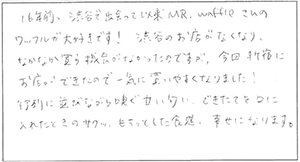 16年前、渋谷で出会って以来MR. waffleさんの
ワッフルが大好きです！ 渋谷のお店がなくなり、
なかなか買う機会がなかったのですが、今回新宿に
お店ができたので一気に買いやすくなりました！
行列に並びながら嗅ぐ甘い匂い、できたてを口に
入れたときのサクッ、もちっとした食感、幸せになります。